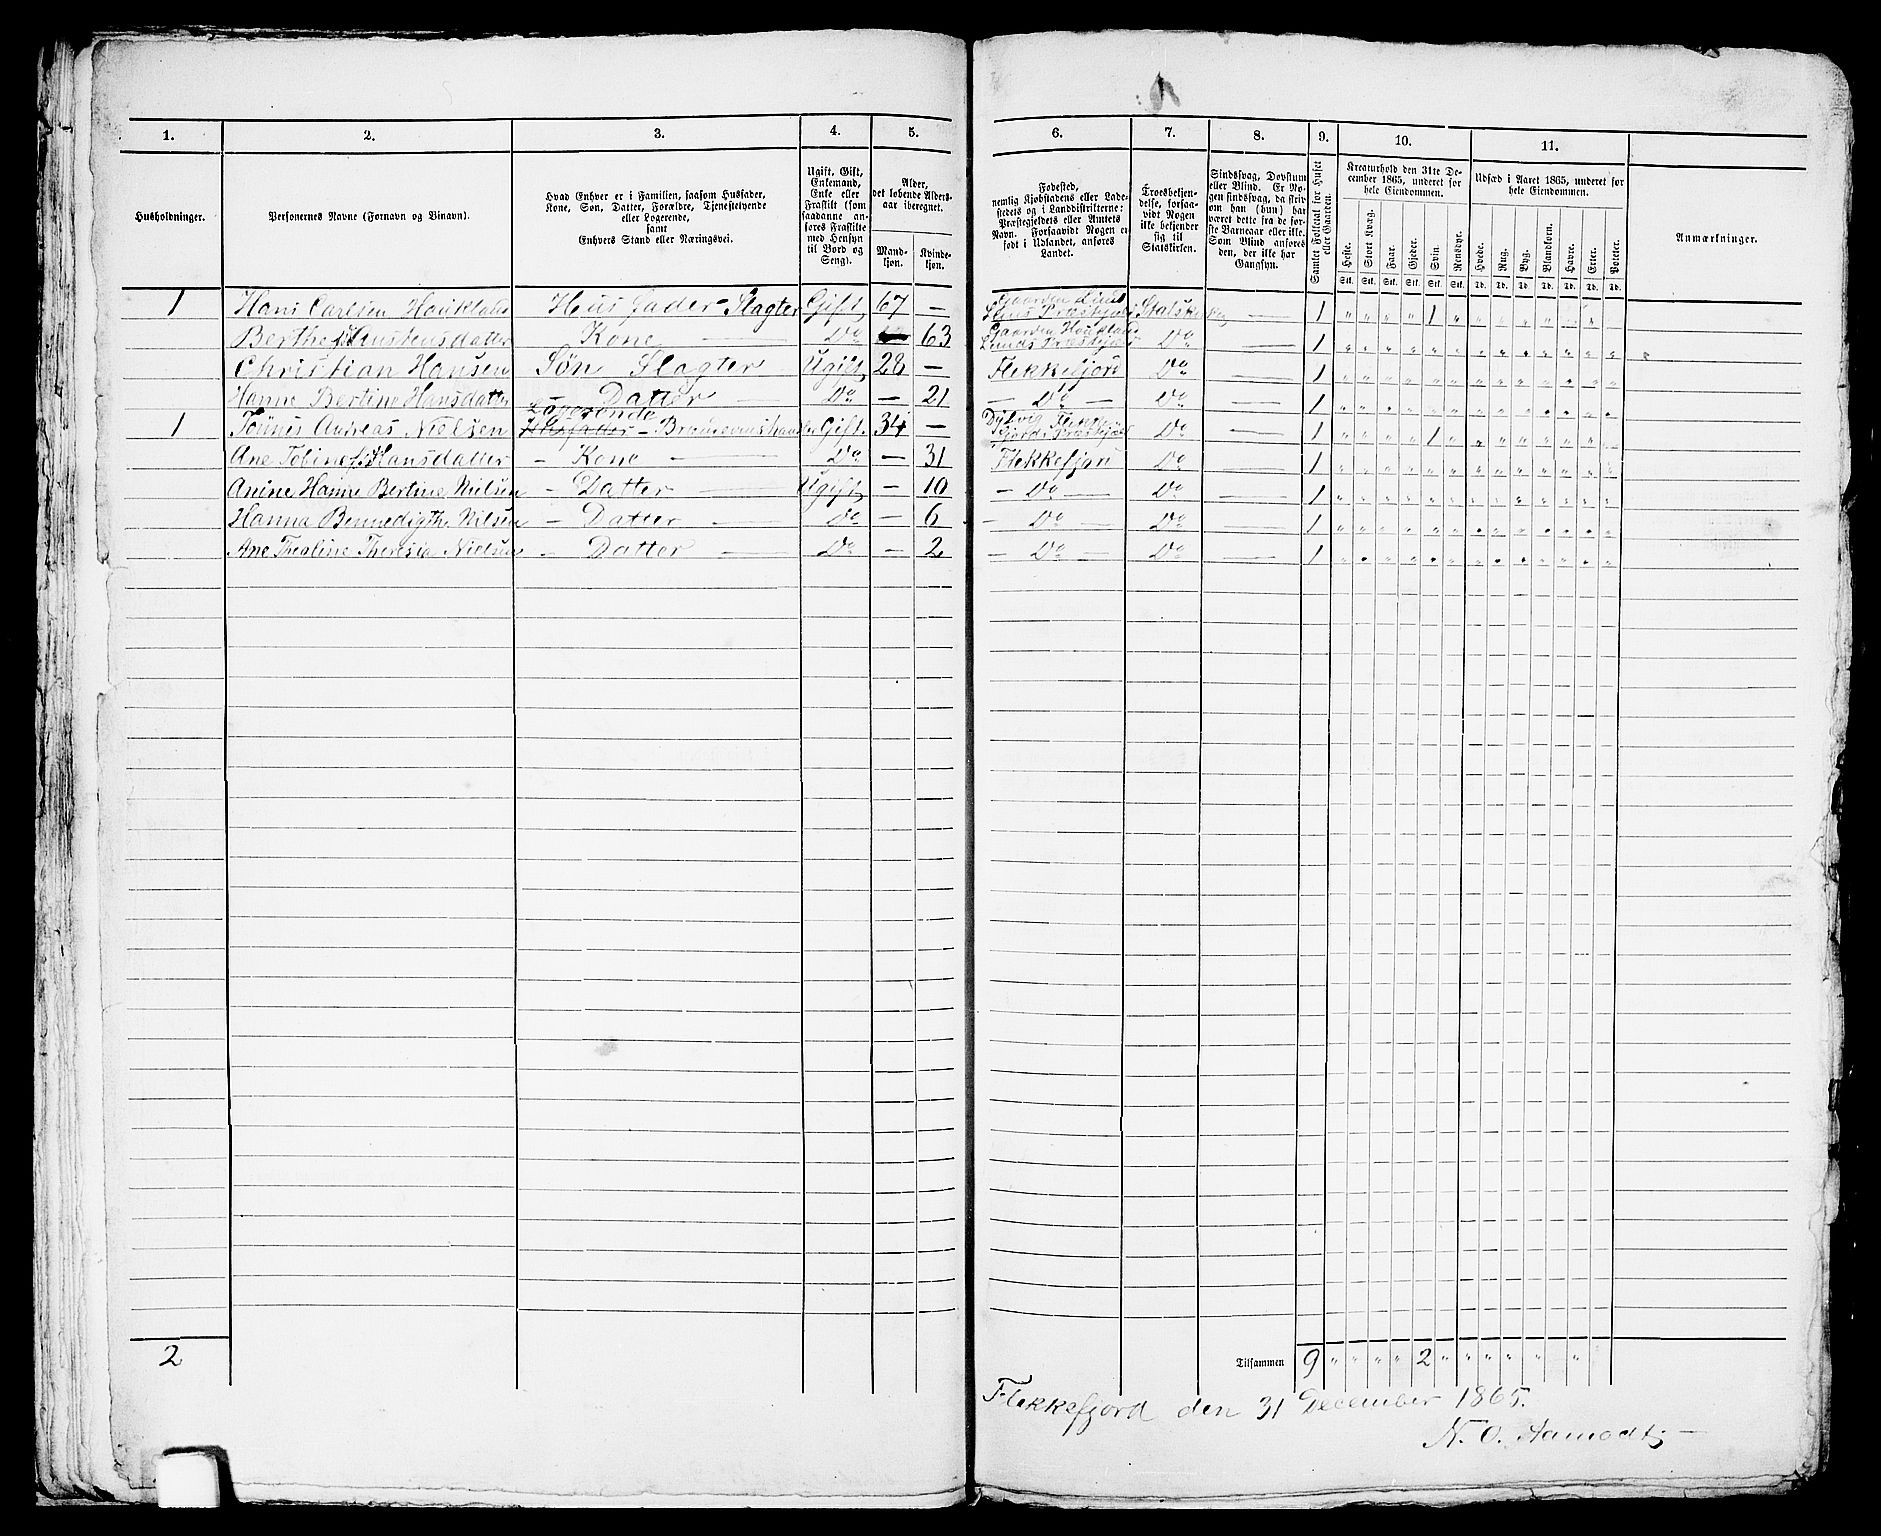 1. 2. 3. 4. 5. 6. 7. 8. 9. 10. 11.
Husholdninger.
Personernes Navne (Fornavn og Binavn).
Hvad Enhver er i Familien, saasom Husfader,
Kone, Søn, Datter, Forældre, Tjenestetyende
eller Logerende,
samt
Enhvers Stand eller Næringsvei.
Ugift, Gift,
Enkemand,
Enke eller
Fraskilt (som
saadanne an-
føres Fraskilte
med Hensyn
til Bord og
Seng).
Alder,
det løbende Alders-
aar iberegnet.
Mand-
kjøn.
Kvinde-
kjøn.
Fødested,
nemlig Kjøbstadens eller Lade-
stedets og i Landdistrikterne:
Præstegjeldets eller Amtets
Navn. Forsaavidt Nogen er
født i Udlandet, anføres
Landet.
Troesbekjen-
delse, forsaa-
vidt Nogen
ikke bekjender
sig til
Statskirken.
Sindssvag, Døvstum
eller Blind. Er No-
gen sindssvag, da skriv
om han (hun) har
været dette fra de før-
ste Barneaar eller ikke.
Som Blind anføres
den, der ikke har
Gangsyn.
Samlet Folketal for Huset
eller Gaarden.
Kreaturhold den 31te De-
cember 1865, underet for
hele Eiendommen.
Heste. Stort Kvæg. Faar. Gjeder. Svin. Rensdyr.
Stk. Stk. Stk. Stk. Stk. Stk.
Udsæd i Aaret 1865, underet for
hele Eiendommen.
Hvede. Rug. Byg. Blandkorn. Havre. Erter. Poteter.
Td. Td. Td. Td. Td. Td. Td.
Anmærkninger.
1 Hans Carlsen Houkland Husfader Slagter Gift 67 — Gaarden Lund Præstkjæld Statskirken — 1 " " " " 1 "
Berthe Do — 63 Gaarden Houkland Lunds Præstkjæld Do — 1
Kone
Christian Hansen Søn Slagter Ugift 28 — Flekkefjord Do — 1
Hanne Bertine Hansdatter — Datter — Do — 21 — Do — Do — 1
Logerende
1 Tönnes Andreas Nielsen Husfader - Gift 34 — Flekkefjords Præstkjæld Do — 1 " " " " 1 "
Ane Tobine Hansdatter - Kone — Do — 31 Flekkefjord Do — 1
Anine Hanne Bertine Nielsen - Datter — Ugift — 10 — Do — Do — 1
Hanna Bennedigthe Nilsen - Datter — Do — 6 — Do — Do — 1
Ane Thealine Theresia Nielsen - Datter — Do — 2 — Do — Do — 1
2 Tilsammen 9 " " " " 2 " " " " " "
Flekkefjord den 31 December 1865.
N. O. Aamodt